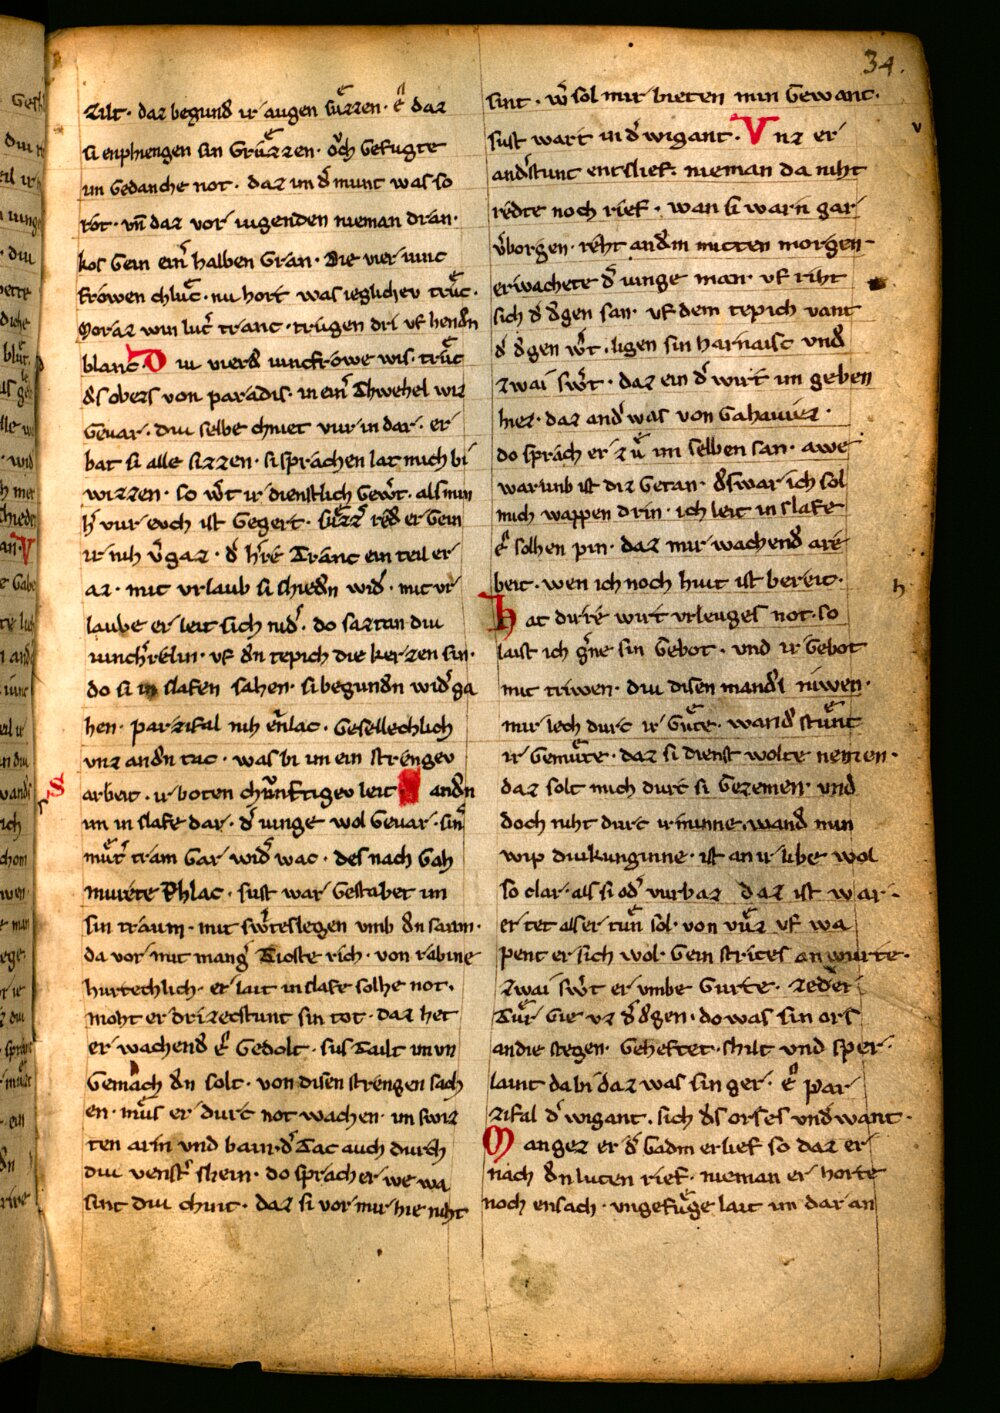 34.
zilt · daz begund ir augen sůzzen · e᷒ daz
si enphiengen sin Grůzzen · o᷒ch Gefugte
im Gedanche not · daz im d᷒ munt was so
rot · vn̄ daz vor iugenden nieman dran·
kos Gein ein᷒ halben Gran · Die vier iunc
frowen chlůc · nu hort was ieglichev trůc ·
Moraz win lut᷒ tranc · trůgen dri vf hend᷒n
blanc D iu vierd᷒ iuncfrowe wis · trůc
d᷒s obezs von paradis · in ein᷒ Thwehel wiz
Gevar · diu selbe chniet vur in dar · er
bat si alle sizzen · si sprachen lat mich bi
wizzen · so w᷒t ir dienstlich Gew᷒t · als min
h᷒ vur evch ist Gegert · sůzz᷒ red᷒ er Gein
ir nih v᷒gaz · d᷒ h᷒re Tranc ein teil er
az · mit vrlaub si schied᷒n wid᷒ · mit vr
laube er leit sich nid᷒ · do sazten diu
iunch᷒relin · vf d᷒n tepich die kerzen sin·
do si in slafen sahen · si begund᷒n wid᷒ ga
hen · parzifal nih eīnlac · Gesellechlich
vnz and᷒n tac · was bi im ein strengev
S
arbeit · ir boten chůnftigev leit and᷒n
im in slafe dar · d᷒ iunge wol Gevar · sin᷒
můt᷒ tram Gar wid᷒ wac · des nach Gah
murete Rhlac · sust war Gestabet im
sin traum · mit sw᷒tes slegen vmb d᷒n saum·
da vor mit mang᷒ Tioste rich · von rabine
hurtechlich · er lait in slafe solhe not·
moht er drizecstunt sin tot · daz het
er wachend᷒ e᷒ Gedolt · sus Tailt im vn
Gemach d᷒n solt · von disen strengen sach
en · můs er durc not wachen · im swiz
ten arm vnd bain · d᷒ Tac auch durch
diu venst᷒ shein · do sprach er we wa
sint diu chint · daz si vor mir hie niht
sint · w᷒ sol mir bieten min Gewant·
sust wart in d᷒ wigant · V nz er
v
and᷒stunt entslief · nieman da niht
redte noch rief · wan si warn gar
v᷒borgen · reht and᷒m mitten morgen·
erwachete d᷒ iunge man · vf riht
sich d᷒ d᷒gen san · vf dem tepich vant
d᷒ d᷒gen w᷒t · ligen sin harnaisc vnd᷒
zwai sw᷒t · daz ein d᷒ wirt im geben
hiez · daz and᷒ was von Gahaviez ·
do sprach er zů im selben san · awe
warumb ist diz Getan · d᷒swar ich sol
mich wappen drin · ich leit in slafe
e᷒ solhen pin · daz mir wachend᷒ are
beit · wen ich noch huit ist bereit·
h
h at dirre wirt vrleuges not · so
laist ich g᷒ne sin Gebot · vnd ir Gebot
mit triwen · diu disen mand᷒l niwen·
mir lech durc ir Gůte · wand᷒ stůnt
ir Gemůte · daz si dienst wolte nemen·
daz solt mich durc si Gezemen vnd
doch niht durc ir minne · wand᷒ min
wip diu kunginne · ist an ir libe wol
so clar · als si od᷒ vurbaz daz ist war·
er tet als er tůn sol · von vůz vf wa
pent er sich wol · Gein strites anwurte·
zwai sw᷒t er vmbe Gurte · zeder
Tůr Gie vz d᷒ d᷒gen · do was sin ors
an die stegen · Geheftet · shilt vnd sper ·
laint da bi daz was sin ger · e᷒ par
zifal d᷒ wigant · sich d᷒s orses vnd᷒want·
M angez er d᷒ Gadm erlief so daz er
nach d᷒n luten rief · nieman er horte
noch ensach · vngefůge lait im dar an